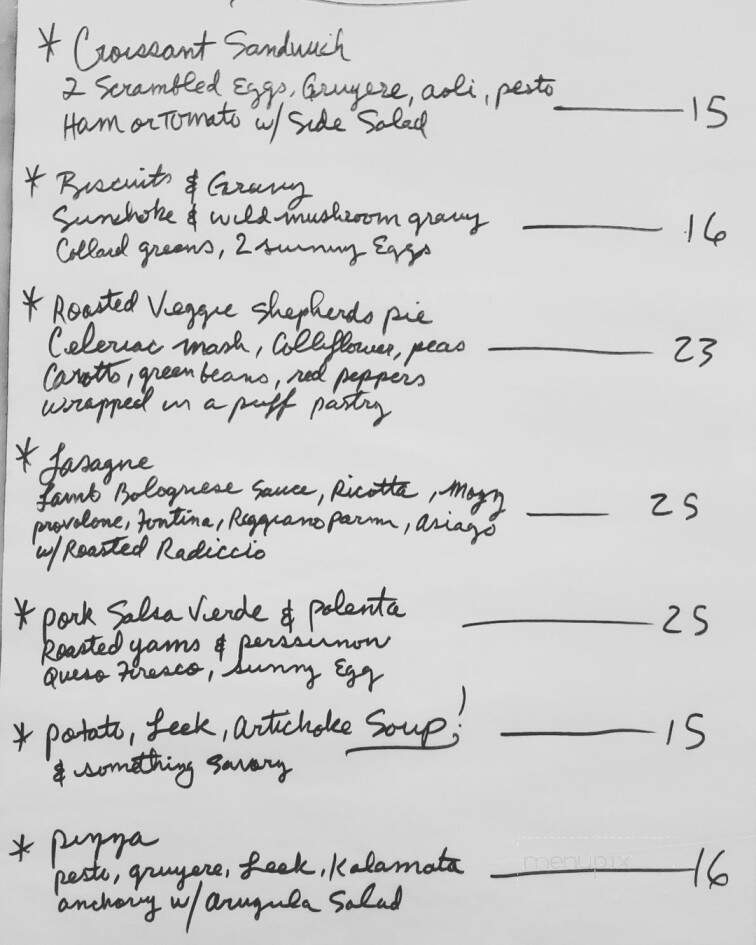 * Croissant Sandwich
2 Scrambled Eggs, Gruyere, aoli, pesto
Ham or Tomato w/ Side Salad — 15
* Biscuits & Gravy
Sunchoke & wild mushroom gravy — 16
Collard greens, 2 sunny Eggs
* Roasted Veggie Shepherds pie
Celeriac mash, Colliflower, peas — 23
Carotts, green beans, red peppers
wrapped in a puff pastry
* Lasagne
Lamb Bolognese Sauce, Ricotta, Mozz
provolone, Fontina, Reggiano parm, asiago — 25
w/ Roasted Radiccio
* pork Salsa Verde & polenta — 25
Roasted yams & perssimon
Queso Fresco, Sunny Egg
* potato, Leek, artichoke Soup! — 15
& something Savory
* pizza
pesto, gruyere, Leek, Kalamata — 16
anchovy w/ arugula Salad
menupix